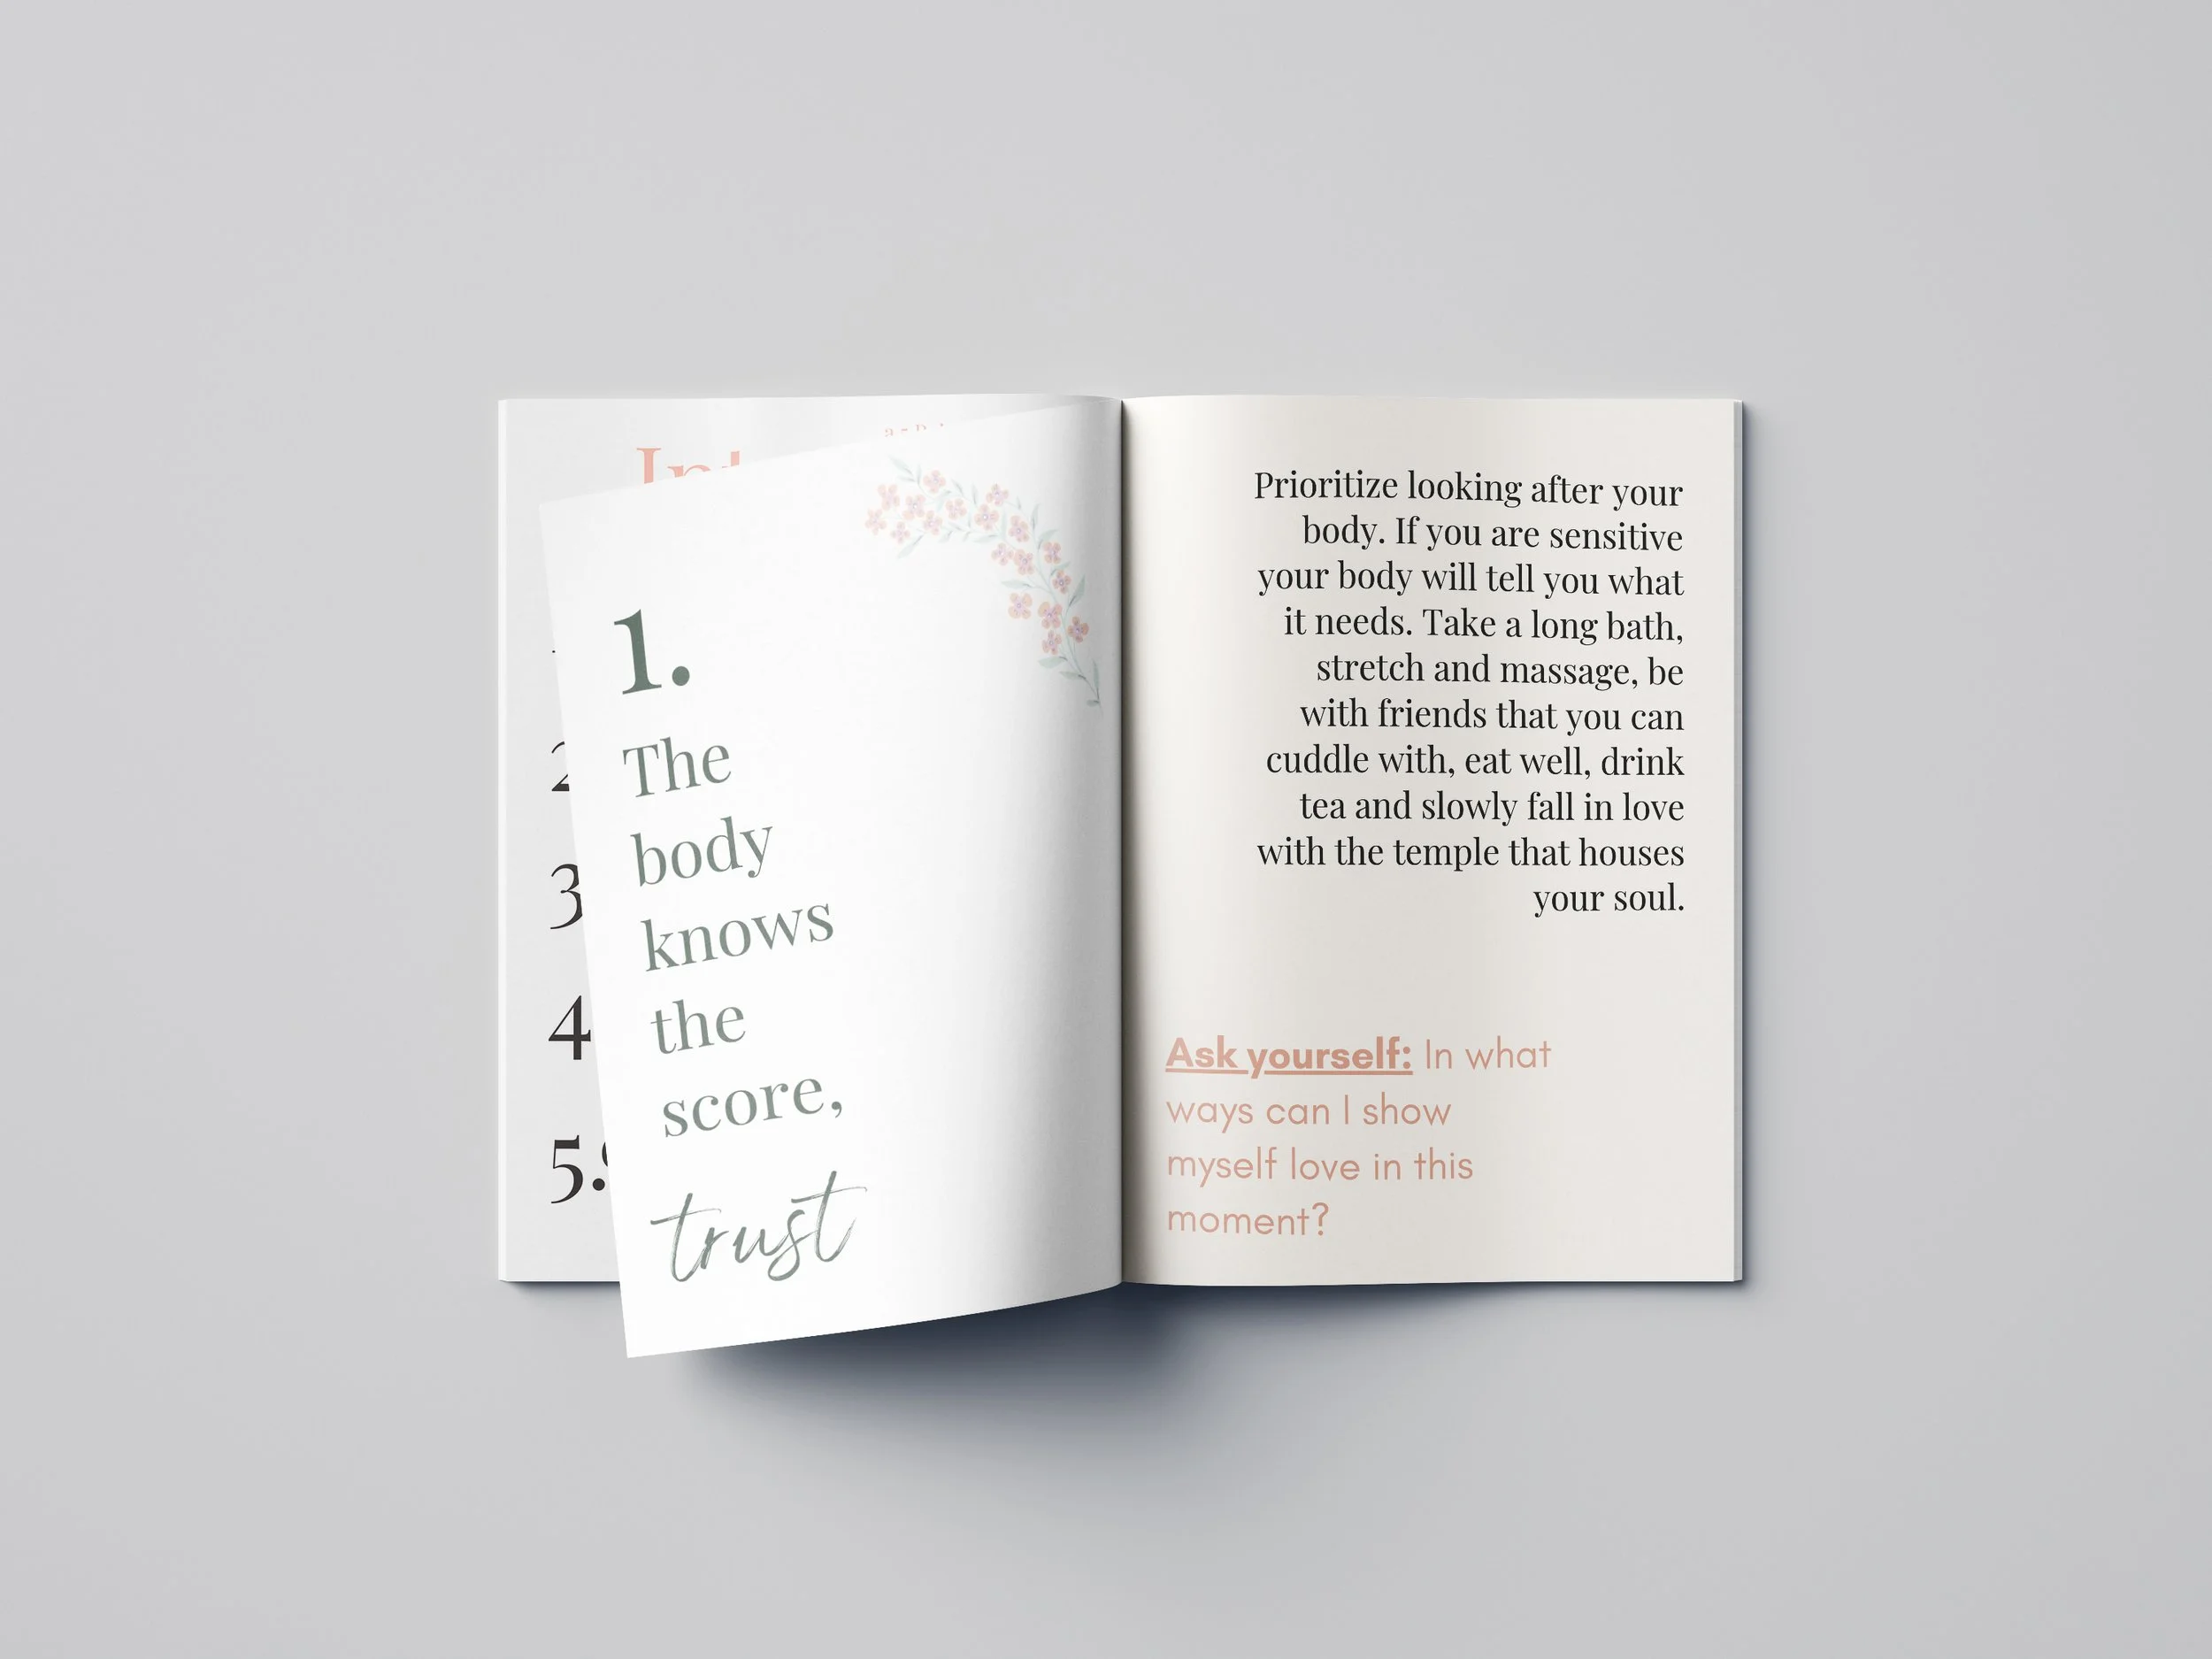 2
3
4
5.
1.
The
body
knows
the
score,
trust
Prioritize looking after your
body. If you are sensitive
your body will tell you what
it needs. Take a long bath,
stretch and massage, be
with friends that you can
cuddle with, eat well, drink
tea and slowly fall in love
with the temple that houses
your soul.
Ask yourself: In what
ways can I show
myself love in this
moment?